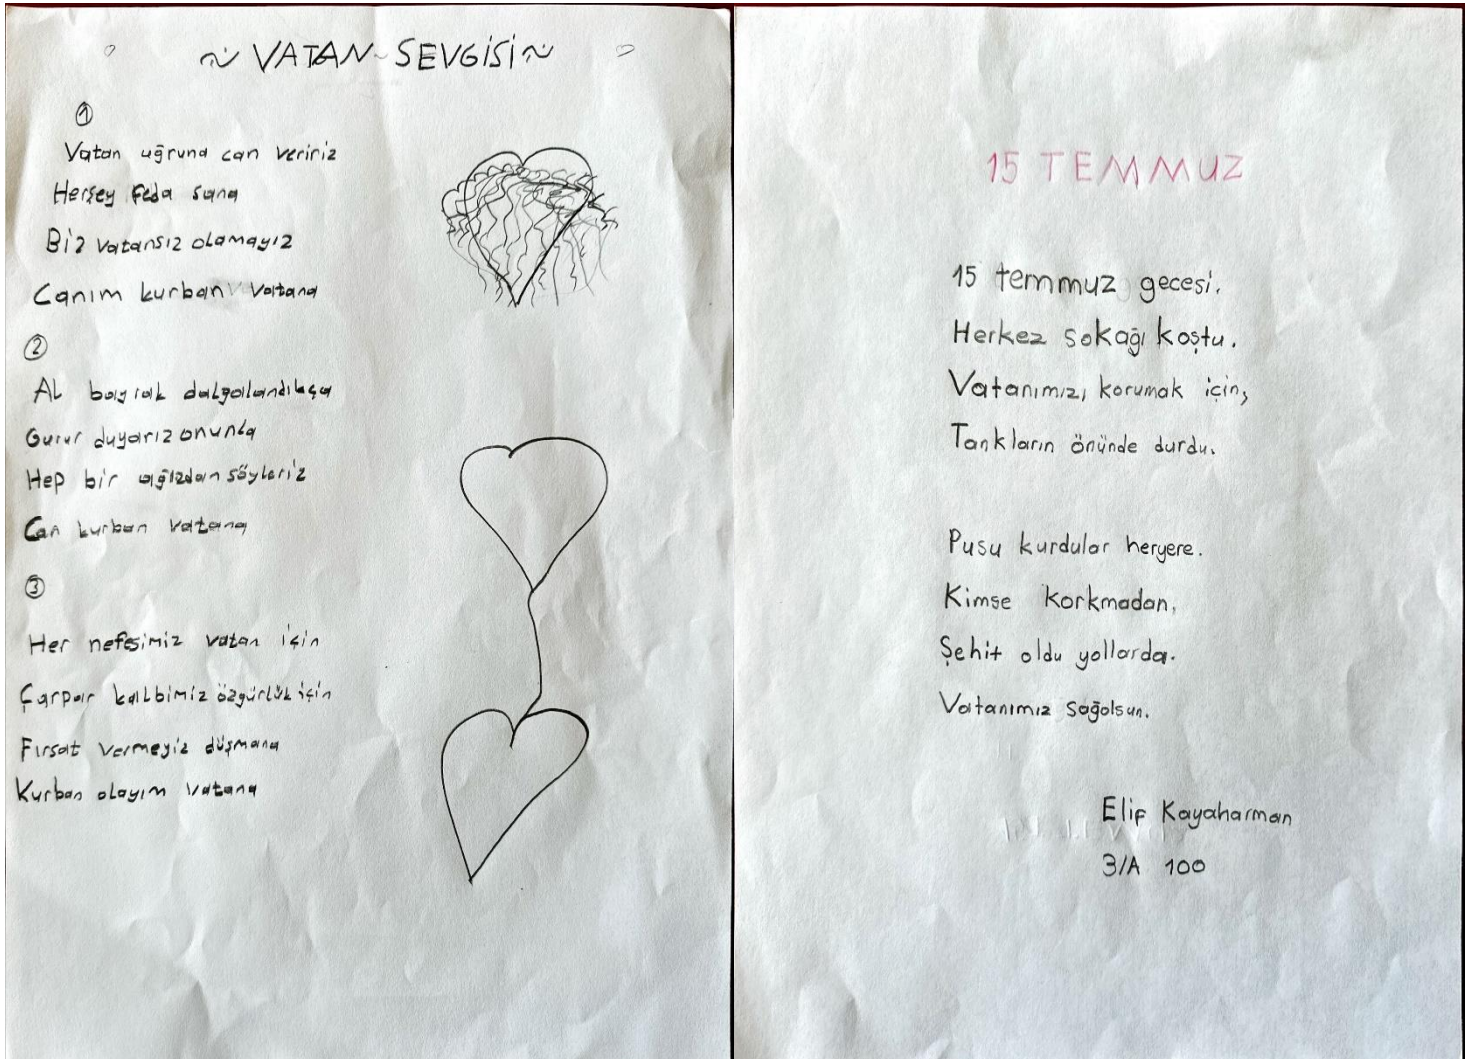 ~ VATAN ~ SEVGİSİ ~
1
Vatan uğruna can veririz
Herşey feda sana
Biz vatansız olamayız
Canım kurban vatana
2
Al bayrak dalgalandıkça
Gurur duyarız onunla
Hep bir ağızdan söyleriz
Can kurban vatana
3
Her nefesimiz vatan için
Çarpar kalbimiz özgürlük için
Fırsat vermeyiz düşmana
Kurban olayım vatana
15 TEMMUZ
15 temmuz gecesi.
Herkez sokağı koştu.
Vatanımızı korumak için,
Tankların önünde durdu.
Pusu kurdular heryere.
Kimse korkmadan,
Şehit oldu yollarda.
Vatanımız sağolsun.
Elif Kayaharman
3/A 100